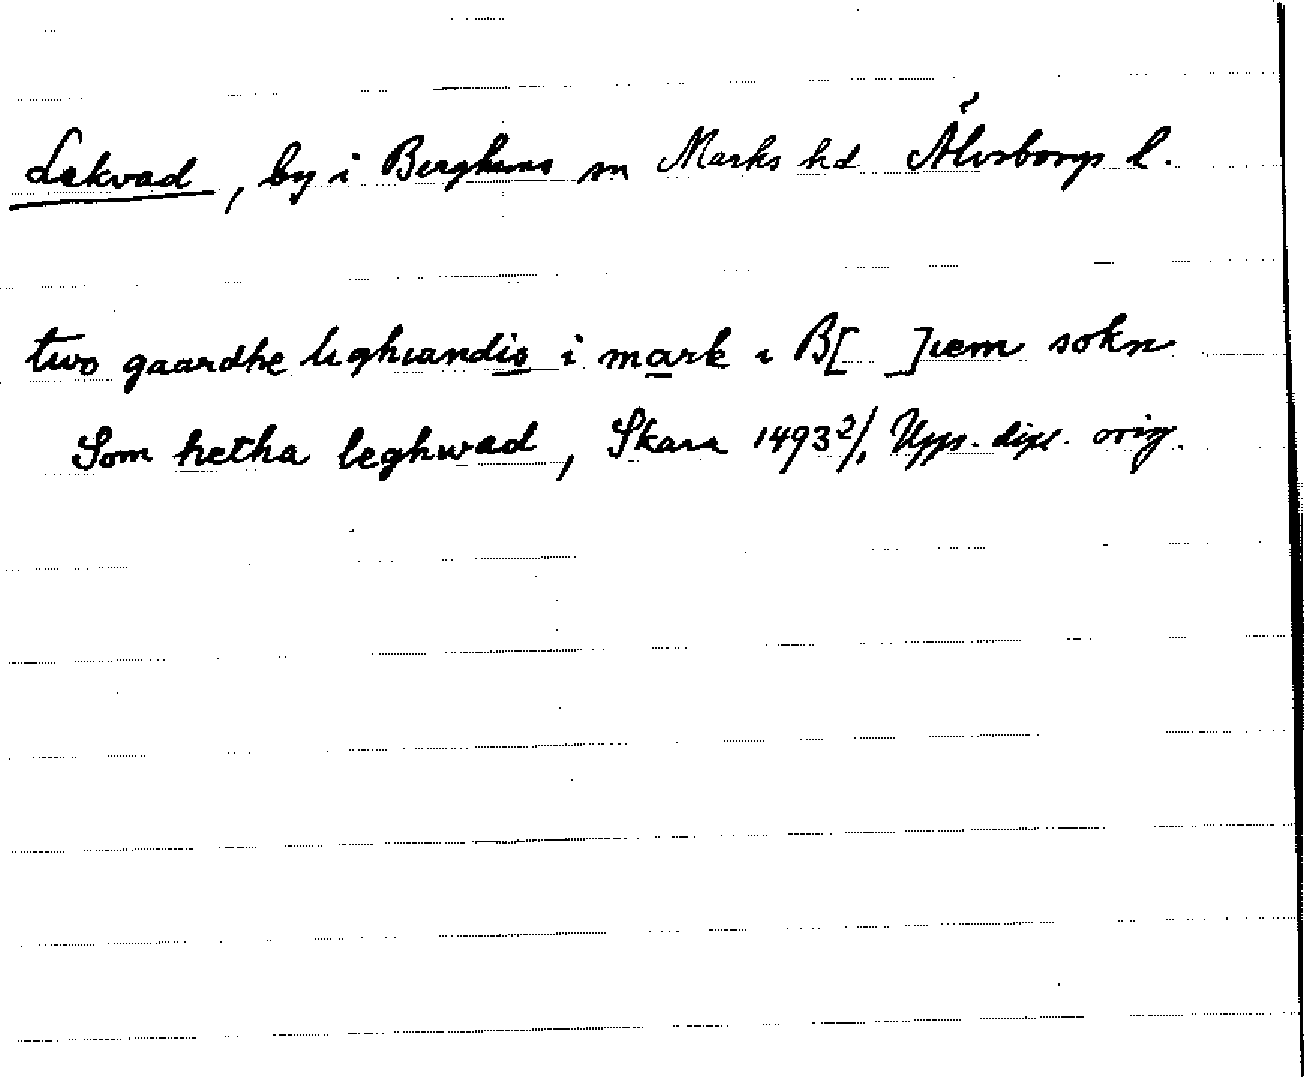 Lekvad, by i Berghems sn Marks hd Älvsborgs l.
two gaardhe lighiandis i mark i B[ ]iem sokn
Som hetha leghwad, Skara 1493 2/1, Upps. dipl. orig.